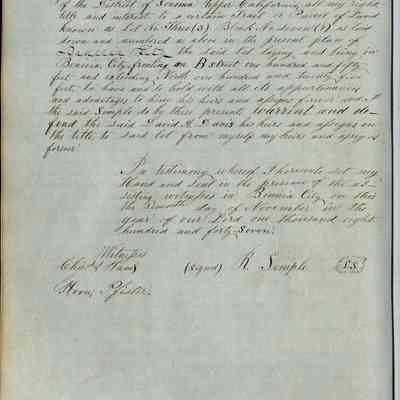 of the District of Sonoma Upper California, all my right
title and interest to a certain Tract or Parcel of Land
known as Lot No Three (3) Block No Seven (7) as laid
down and numbered as above in the present plan of
the said Lot laying and being in
Benicia City fronting on B street one hundred and fifty
feet and extending North one hundred and twenty five
feet, to have and to hold with all its appurtenances
and advantages to him his heirs and assigns forever and I
the said Semple do by these presents warrant and de-
fend the said David A. Davis his heirs and assigns in
the title to said lot from myself my heirs and assigns
forever
In testimony whereof I hereunto set my
Hand and Seal in the presence of the as-
sisting witnesses in Benicia City on this
the day of November in the
year of our Lord one thousand eight
hundred and forty Seven.
Witnesses
Chas Ham (signd) R. Semple L.S.